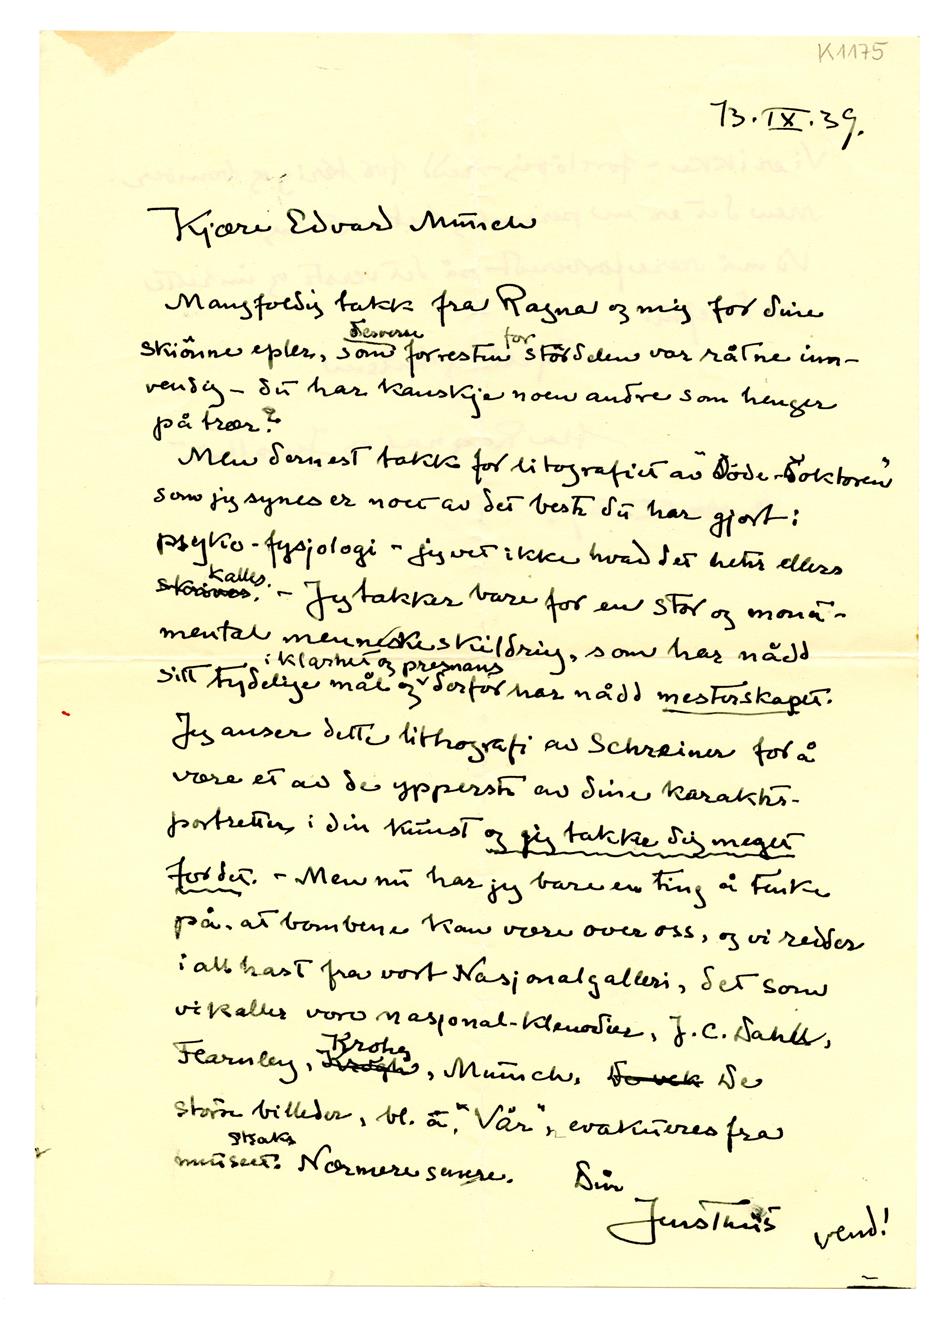 K1175
13.IX.39.
Kjære Edvard Munch
Mangfoldig takk fra Ragna og mig for dine
skjönne epler, som desverre forresten for stördelen var råtne inn-
vendig – du har kanskje noen andre som henger
på trær?
Men dernest takk for litografiet av "Döde-Doktoren"
som jeg synes er noe av det beste du har gjort i
psyko-fysjologi – jeg vet ikke hvad det heter ellers
skrives. kalles. – Jeg takker bare for en stor og monu-
mental menneskeskildring, som har nådd
sitt tydelige mål i klarhet og pregnans og derfor har nådd mesterskapet.
Jeg anser dette lithografi av Schreiner for å
være et av de ypperste av dine karakter-
portretter i din kunst og jeg takke dig meget
for det. – Men nu har jeg bare en ting å tenke
på, at bombene kan være over oss, og vi redder
i all hast fra vort Nasjonalgalleri, det som
vi kaller vore nasjonal-klenodier, J.C. Dahl,
Fearnley, Krogh, Krohg, Munch. De
större billeder, bl. a. "Vår", evakueres fra
museet straks. Nærmere senere. Din
Jens Thiis
vend!